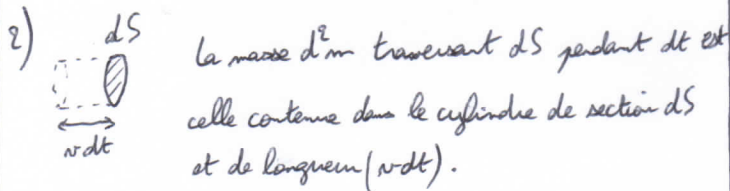 2) dS
La masse d²m traversant dS pendant dt est
celle contenue dans le cylindre de section dS
v dt
et de longueur (v dt).